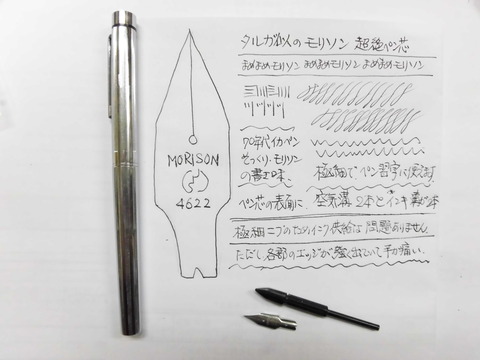 タルガ似のモリソン 超絶ペン芯
まめまめモリソン まめまめモリソン まめまめモリソン
70年代イカペン
そっくり・モリソン
の書き味、
極細でペン習字に使えます
ペン芯の表面に 空気溝 2本とインキ溝が 本
極細ニブのためインク供給は 問題ありません
ただし各部のエッジが 強く出ていて手が痛い。
MORISON
4622